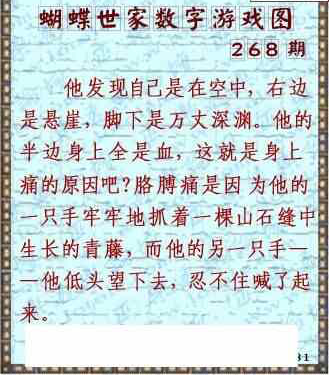 蝴蝶世家数字游戏图
268期
他发现自己是在空中，右边
是悬崖，脚下是万丈深渊。他的
半边身上全是血，这就是身上
痛的原因吧?胳膊痛是因 为他的
一只手牢牢地抓着一棵山石缝中
生长的青藤，而他的另一只手—
—他低头望下去，忍不住喊了起
来。